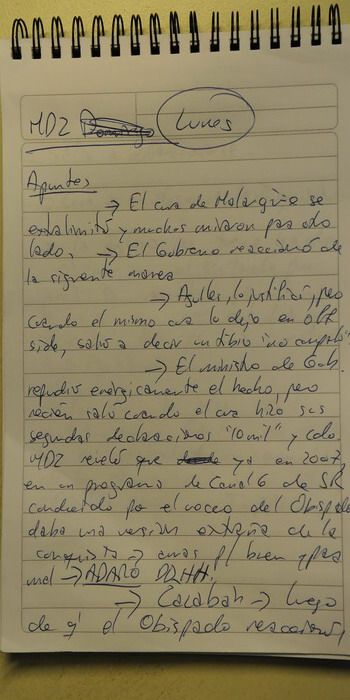 MDZ Domingo Lunes
Apuntes
→ El cura de Malargüe se
extralimitó y muchos miraron para otro
lado. → El Gobierno reaccionó de
la siguiente manera
→ Aguiles, lo justificó, pero
cuando el mismo cura lo dejó en off
side, salió a decir un tibio "no comparto"
→ El ministro de Gob.
repudió energicamente el hecho, pero
recién salió cuando el cura hizo sus
segundas declaraciones "10 mil" y cdo.
MDZ reveló que ya en 2007,
en un programa de Canal 6 de SR
conducido por el vocero del Obispado
daba una versión extraña de la
conquista → curas p/ bien y para
mal → ADARO DDHH.
→ Cazabán → luego
de q' el Obispado reaccionó,